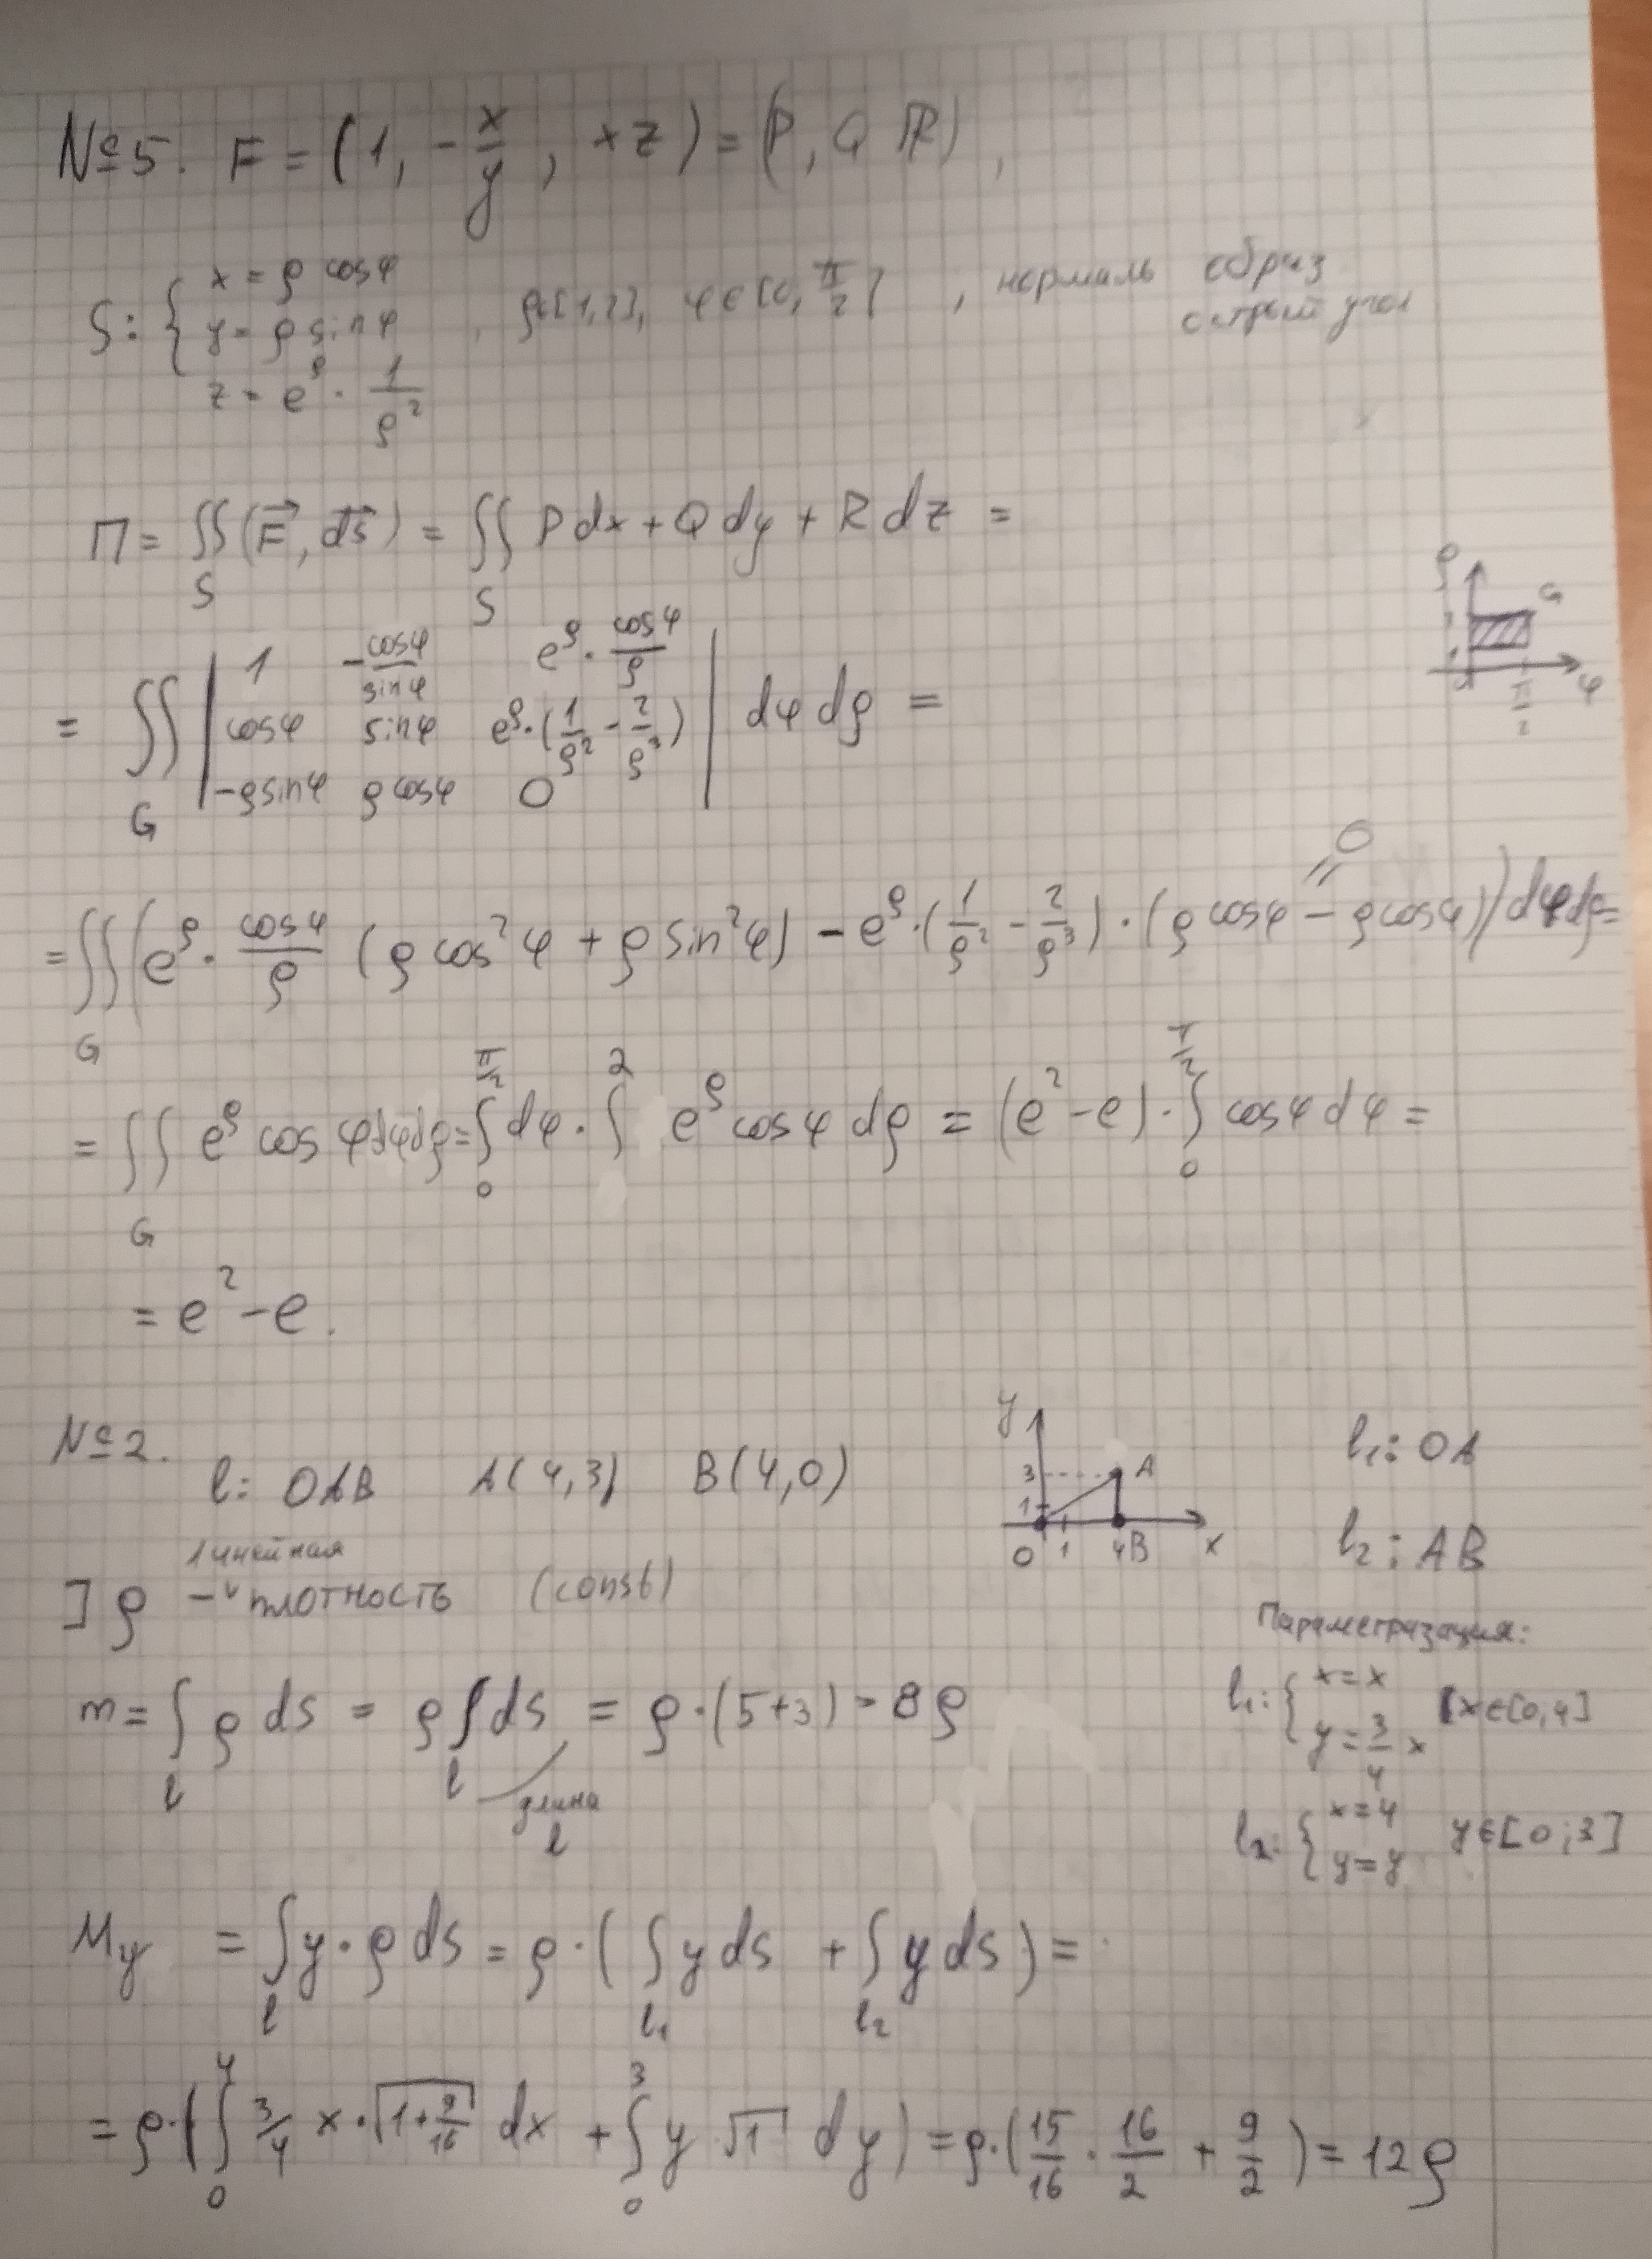 №5. F = (1, -x/y, xz) = (P, Q, R),
S: { x = ρ cosφ
y = ρ sinφ , ρ∈[1,2], φ∈[0, π/2] , нормаль образ острый угол
z = e^ρ · 1/ρ²
П = ∬_S (F⃗, ds⃗) = ∬_S Pdx + Qdy + Rdz =
= ∬_G | 1 -cosφ/sinφ e^ρ · cosφ/ρ
cosφ sinφ e^ρ · (1/ρ² - 2/ρ³)
-ρsinφ ρcosφ 0 | dφdρ =
ρ G 0 π/2 φ
= ∬_G (e^ρ · cosφ/ρ (ρcos²φ + ρsin²φ) - e^ρ · (1/ρ² - 2/ρ³) · (ρcosφ - ρcosφ)) dφdρ =
= 0
= ∬_G e^ρ cosφ dφdρ = ∫_0^{π/2} dφ · ∫^2 e^ρ cosφ dρ = (e² - e) · ∫_0^{π/2} cosφ dφ =
= e² - e.
№2. l: OAB A(4,3) B(4,0)
y 3 1 O 1 4 A B x
l₁: OA
l₂: AB
] ρ - линейная плотность (const)
Параметризация:
m = ∫_l ρ ds = ρ ∫_l ds = ρ·(5+3) = 8ρ
длина l
l₁: { x = x
y = 3/4 x [x∈[0,4]
l₂: { x = 4
y = y y∈[0;3]
My = ∫_l y·ρ ds = ρ·( ∫_{l₁} y ds + ∫_{l₂} y ds ) =
= ρ·( ∫_0^4 3/4 x·√(1+9/16) dx + ∫_0^3 y √1 dy ) = ρ·(15/16 · 16/2 + 9/2) = 12ρ